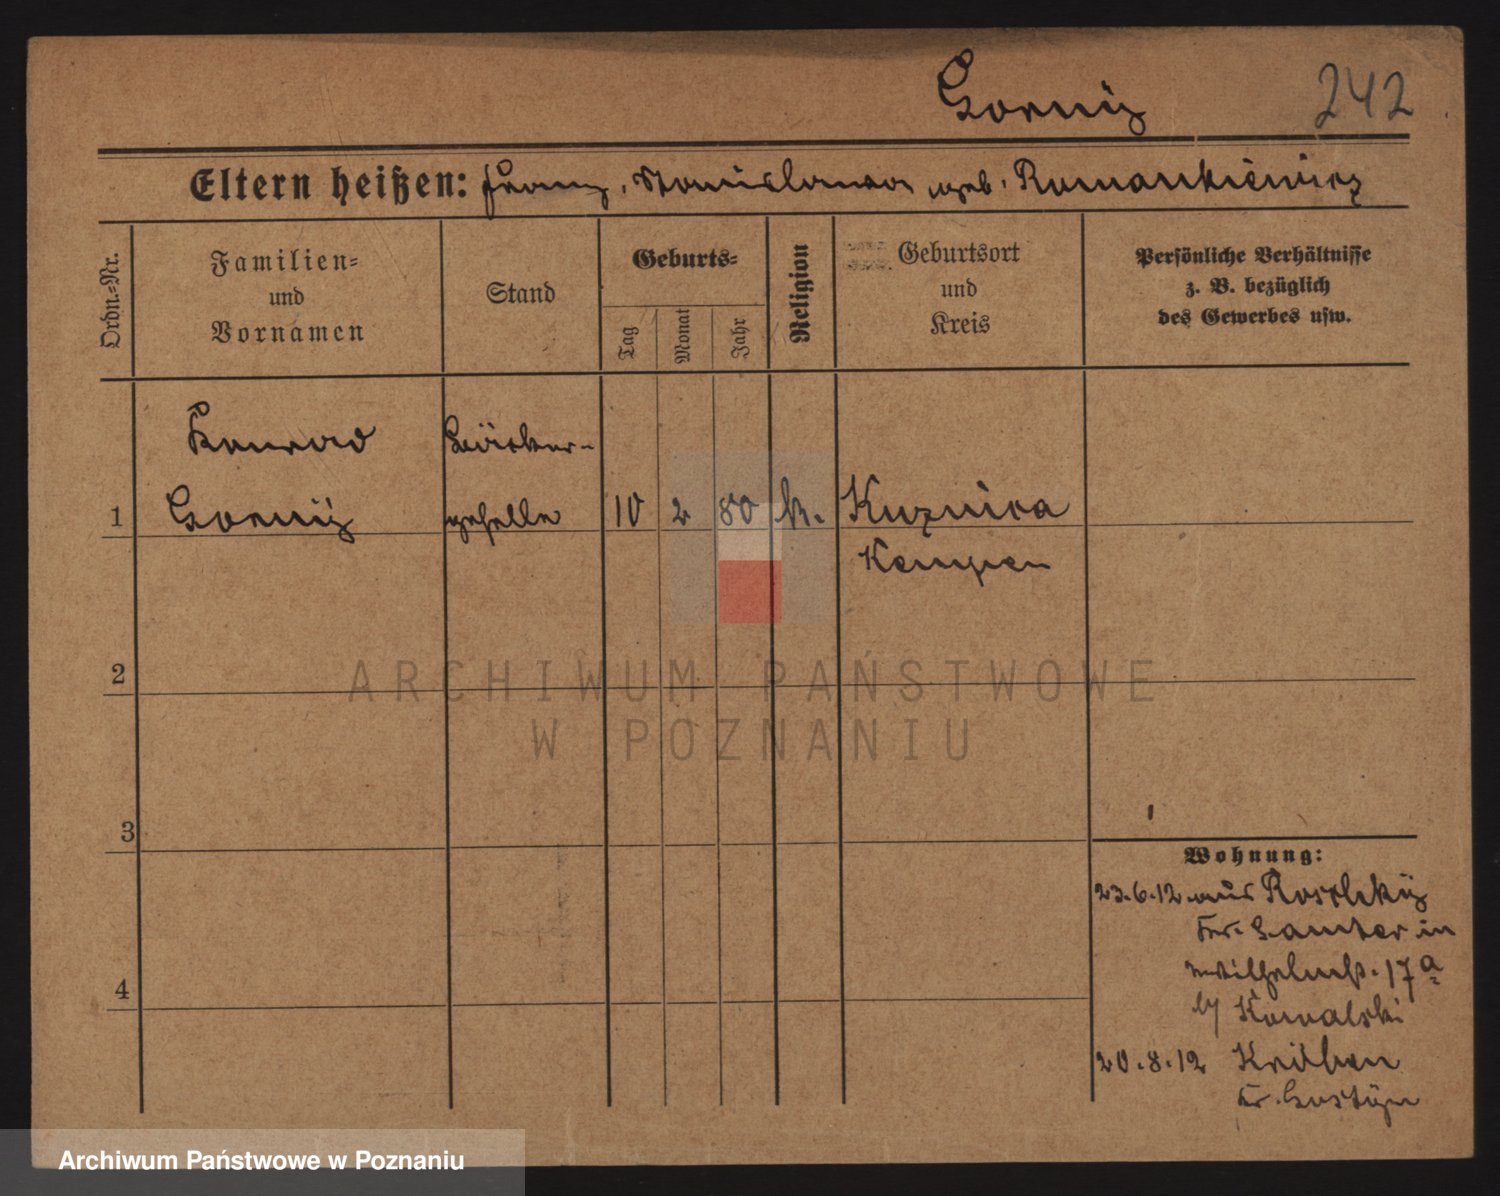 Gorny 242
Eltern heißen: Franz, Stanislawa geb. Romankiewicz
Ordn.-Nr.
Familien-
und
Vornamen
Stand
Geburts-
Tag
Monat
Jahr
Religion
Geburtsort
und
Kreis
Persönliche Verhältnisse
z. B. bezüglich
des Gewerbes usw.
Konrad
1 Gorny
geselle 10 2 80 k. Kuznica
Kempen
2
3
4
Wohnung:
23.6.12 aus
Kr. Samter in
Wilhelmst. 17a
b/ Kowalski
20.8.12 Kröben
Kr. Gostyn
ARCHIWUM PAŃSTWOWE
W POZNANIU
Archiwum Państwowe w Poznaniu